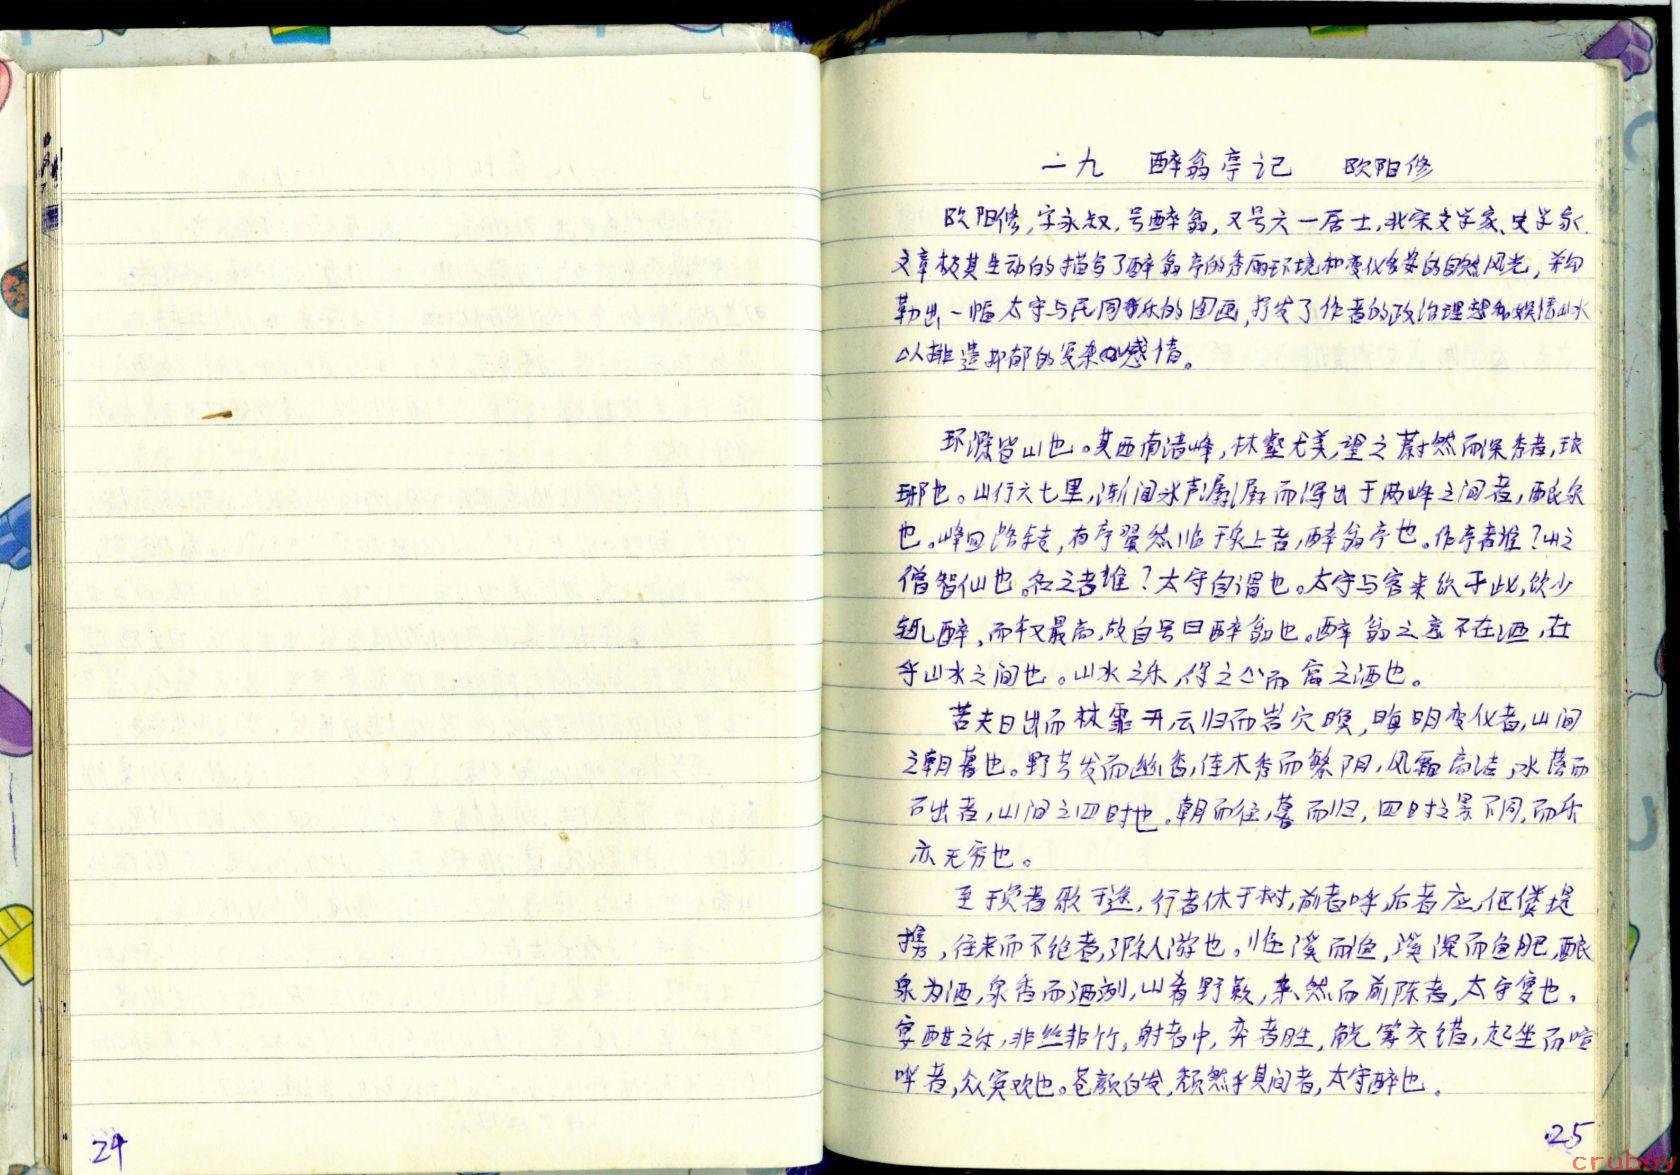 二九 醉翁亭记 欧阳修
欧阳修,字永叔,号醉翁,又号六一居士,北宋文学家、史学家.
文章极其生动的描写了醉翁亭的秀丽环境和变化多姿的自然风光,并勾
勒出一幅太守与民同乐的图画,抒发了作者的政治理想和娱情山水
以排遣抑郁的复杂感情。
环滁皆山也。其西南诸峰,林壑尤美,望之蔚然而深秀者,琅
琊也。山行六七里,渐闻水声潺潺而泻出于两峰之间者,酿泉
也。峰回路转,有亭翼然临于泉上者,醉翁亭也。作亭者谁?山之
僧智仙也。名之者谁?太守自谓也。太守与客来饮于此,饮少
辄醉,而年又最高,故自号曰醉翁也。醉翁之意不在酒,在
乎山水之间也。山水之乐,得之心而寓之酒也。
若夫日出而林霏开,云归而岩穴暝,晦明变化者,山间
之朝暮也。野芳发而幽香,佳木秀而繁阴,风霜高洁,水落而
石出者,山间之四时也。朝而往,暮而归,四时之景不同,而乐
亦无穷也。
至于负者歌于途,行者休于树,前者呼,后者应,伛偻提
携,往来而不绝者,滁人游也。临溪而渔,溪深而鱼肥,酿
泉为酒,泉香而酒洌,山肴野蔌,杂然而前陈者,太守宴也。
宴酣之乐,非丝非竹,射者中,弈者胜,觥筹交错,起坐而喧
哗者,众宾欢也。苍颜白发,颓然乎其间者,太守醉也.
24
25